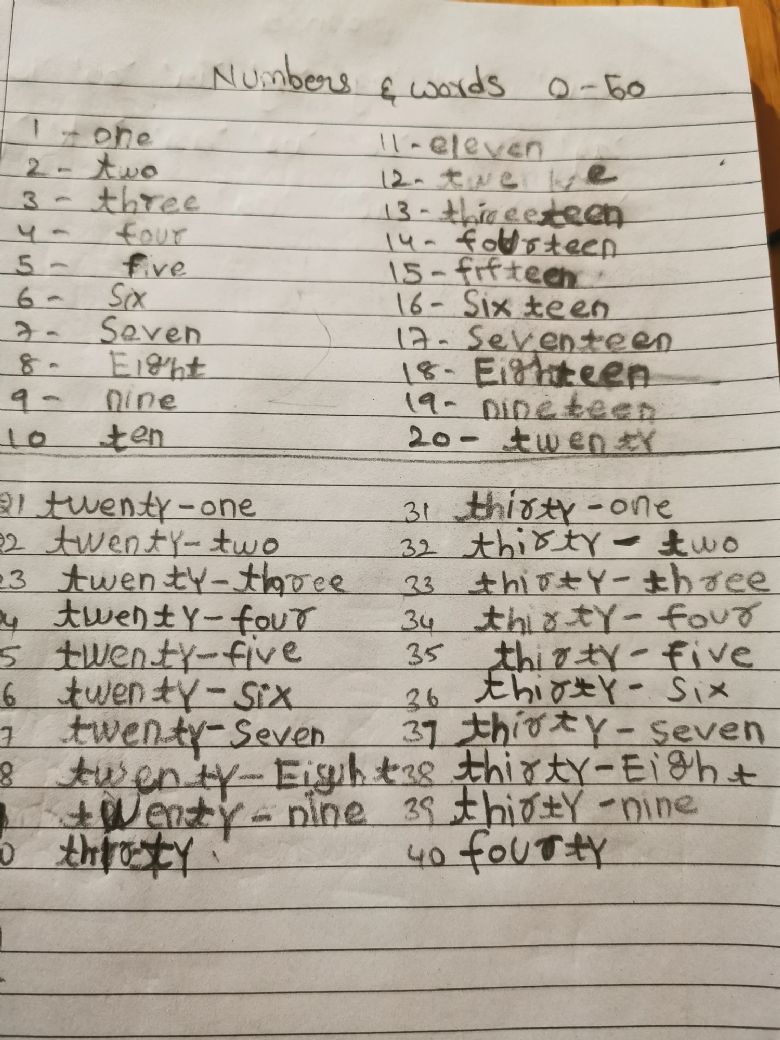 Numbers & words 0-50
1 - one 11 - eleven
2 - two 12 - twelve
3 - three 13 - thireeteen
4 - four 14 - fourteen
5 - five 15 - fifteen
6 - Six 16 - Six teen
7 - Seven 17 - Seventeen
8 - Eight 18 - Eighteen
9 - nine 19 - nineteen
10 ten 20 - twenty
21 twenty-one 31 thirty-one
22 twenty-two 32 thirty - two
23 twenty-three 33 thirty-three
4 twenty-four 34 thirty-four
5 twenty-five 35 thirty-five
6 twenty-Six 36 thirty-Six
7 twenty-Seven 37 thirty-seven
8 twenty-Eight 38 thirty-Eight
twenty-nine 39 thirty-nine
0 thirty 40 fourty